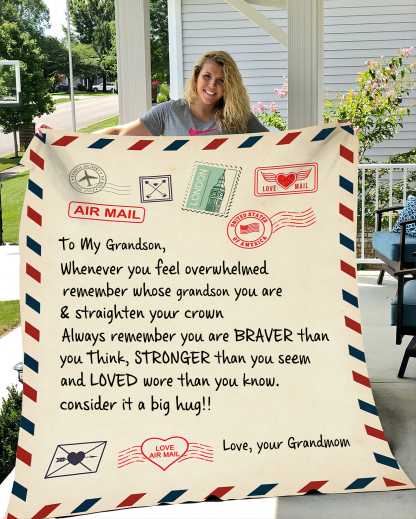 LONDON
LOVE MAIL
AIR MAIL
UNITED STATES
OF AMERICA
To My Grandson,
Whenever you feel overwhelmed
remember whose grandson you are
& straighten your crown
Always remember you are BRAVER than
you Think, STRONGER than you seem
and LOVED wore than you know.
consider it a big hug!!
LOVE
AIR MAIL
Love, your Grandmom